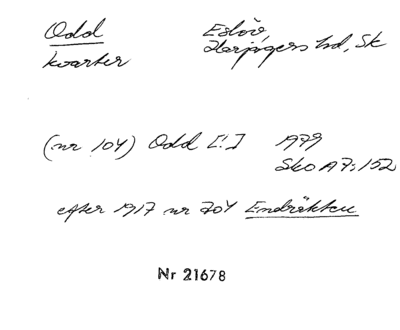 Odd Eslöv,
kvarter Harjagers hd, Sk
(nr 104) Odd [!] 1979
Sko A7:152
efter 1917 nr 704 Endräkten
Nr 21678